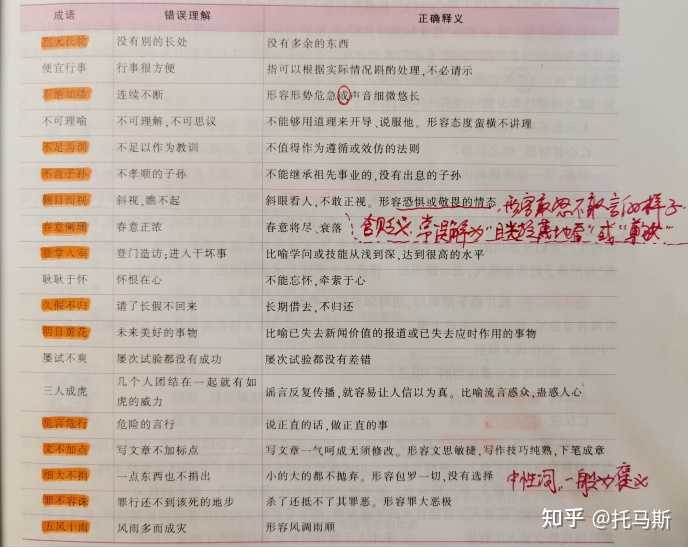 成语 错误理解 正确释义
别无长物 没有别的长处 没有多余的东西
便宜行事 行事很方便 指可以根据实际情况斟酌处理,不必请示
不绝如缕 连续不断 形容形势危急或声音细微悠长
不可理喻 不可理解、不可思议 不能够用道理来开导、说服他。形容态度蛮横不讲理
不足为训 不足以作为教训 不值得作为遵循或效仿的法则
不肖子孙 不孝顺的子孙 不能继承祖先事业的,没有出息的子孙
侧目而视 斜视,瞧不起 斜眼看人,不敢正视。形容恐惧或敬畏的情态 形容敢怒不敢言的样子
春意阑珊 春意正浓 春意将尽、衰落 含贬义 常误解为
登堂入室 登门造访;进入干坏事 比喻学问或技能从浅到深,达到很高的水平
耿耿于怀 怀恨在心 不能忘怀,牵萦于心
久假不归 请了长假不回来 长期借去,不归还
明日黄花 未来美好的事物 比喻已失去新闻价值的报道或已失去应时作用的事物
屡试不爽 屡次试验都没有成功 屡次试验都没有差错
三人成虎 几个人团结在一起就有如
虎的威力 谣言反复传播,就容易让人信以为真。比喻流言惑众,蛊惑人心
危言危行 危险的言行 说正直的话,做正直的事
文不加点 写文章不加标点 写文章一气呵成无须修改。形容文思敏捷,写作技巧纯熟,下笔成章
细大不捐 一点东西也不捐出 小的大的都不抛弃。形容包罗一切,没有选择 中性词,一般为褒义
罪不容诛 罪行还不到该死的地步 杀了还抵不了其罪恶。形容罪大恶极
五风十雨 风雨多而成灾 形容风调雨顺
知乎 @托马斯